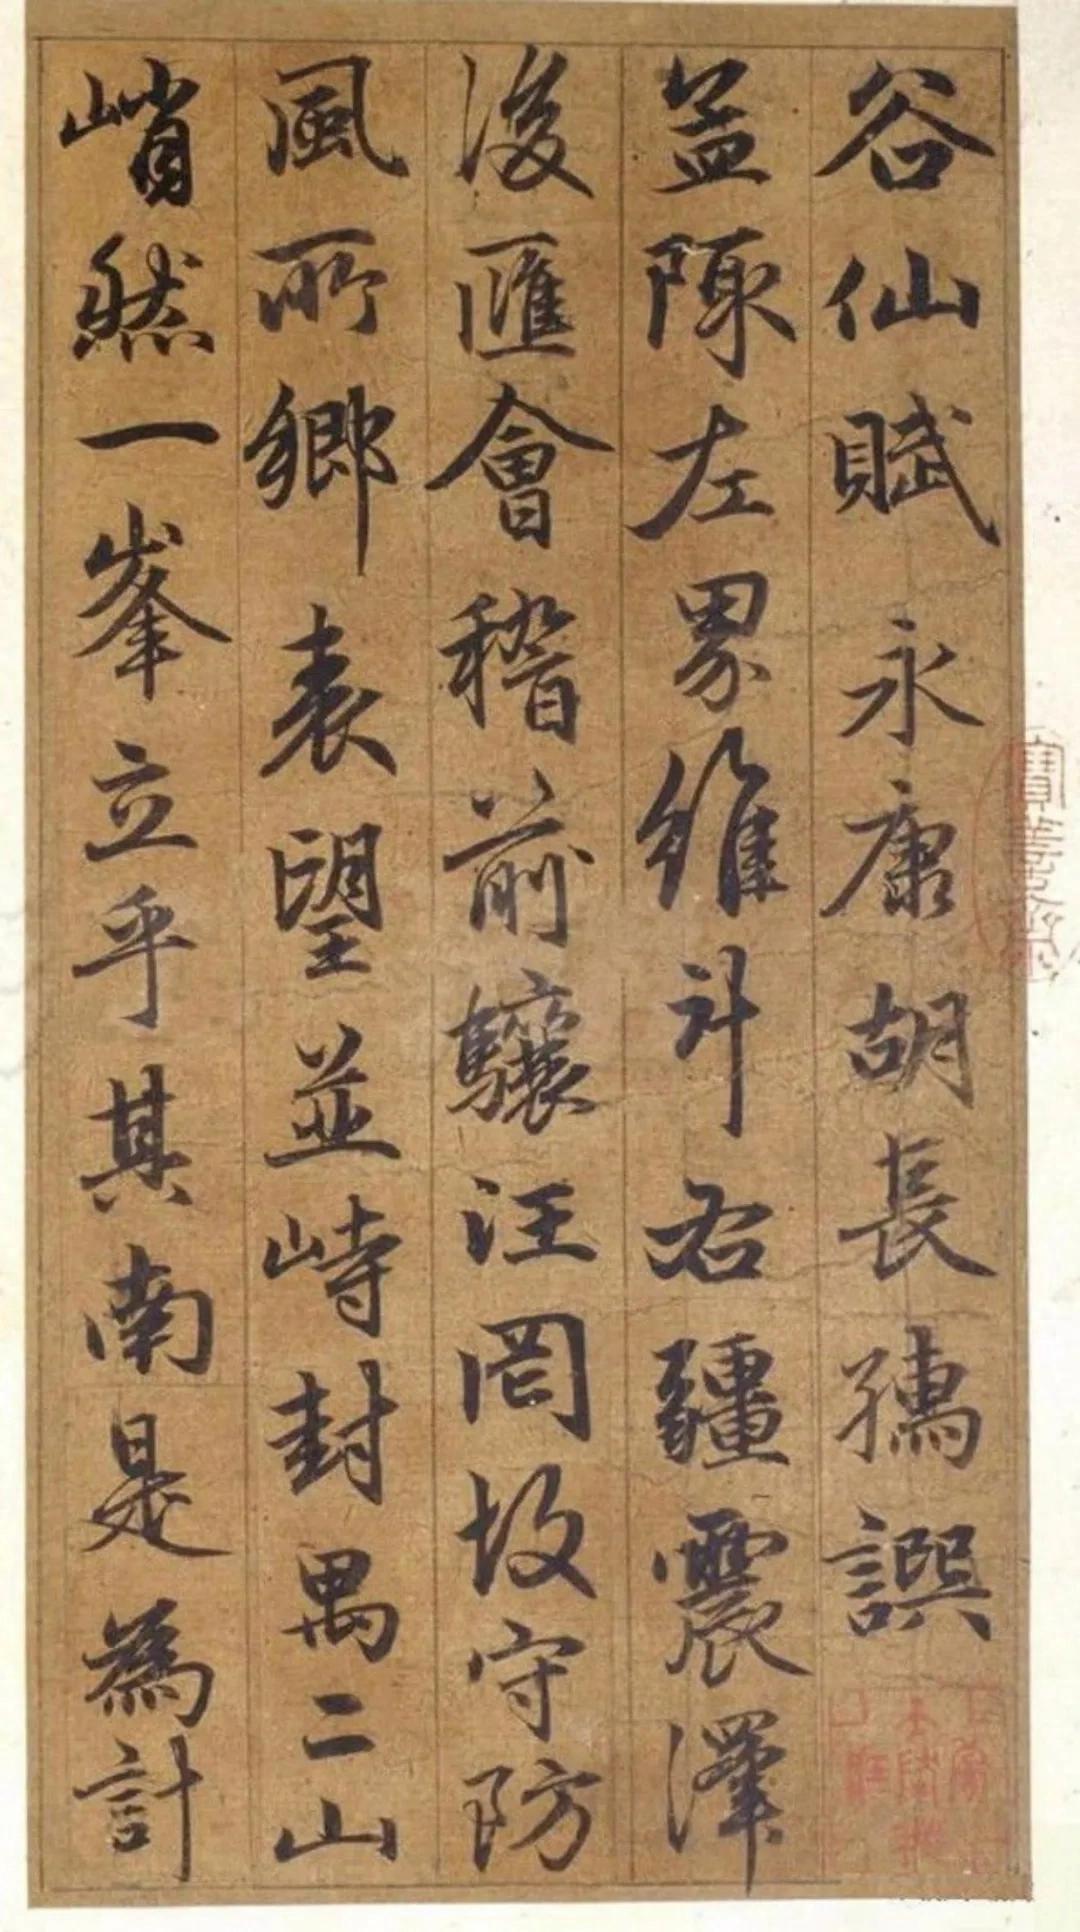 谷仙賦 永康胡長孺譔
左界維斗右疆震澤
後匯會稽前驤汪罔故守防
風所鄉表望並峙封禺二山
峭然一峯立乎其南是為計